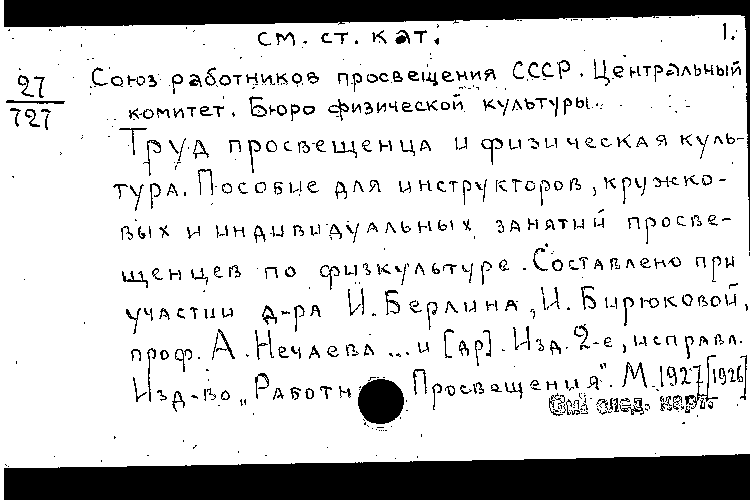 см. ст. кат.
1.
27
727
Союз работников просвещения СССР. Центральный
комитет. Бюро физической культуры.
Труд просвещенца и физическая куль-
тура. Пособие для инструкторов, кружко-
вых и индивидуальных занятий просве-
щенцев по физкультуре. Составлено при
участии д-ра И. Берлина, И. Бирюковой,
проф. А. Нечаева ... и [др]. Изд. 2-е, исправл.
Изд-во „Работн Просвещения". М. 1927 [1926]
См. след. карт.